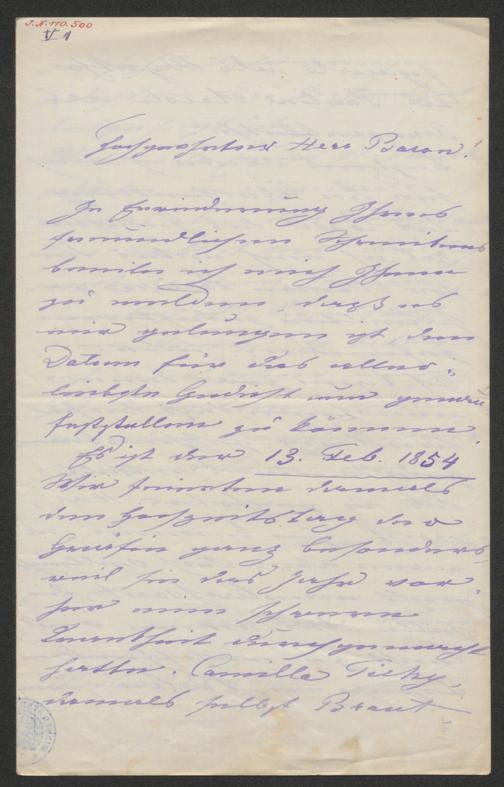 J.N. 110.500
Hochgeehrter Herr Baron!
In Erwiederung Ihres
freundlichen Schreibens
beeile ich mich Ihnen
zu melden, daß es
mir gelungen ist, den
Datum für das aller-
liebste Gedicht nun genau
feststellen zu können.
Es ist der 13. Feb. 1854
Wir feierten damals
den Hochzeitstag der
Gräfin ganz besonders,
weil sie das Jahr vor-
her eine schwere
Krankheit durchgemacht
hatte. Camilla Tichy,
damals selbst Braut